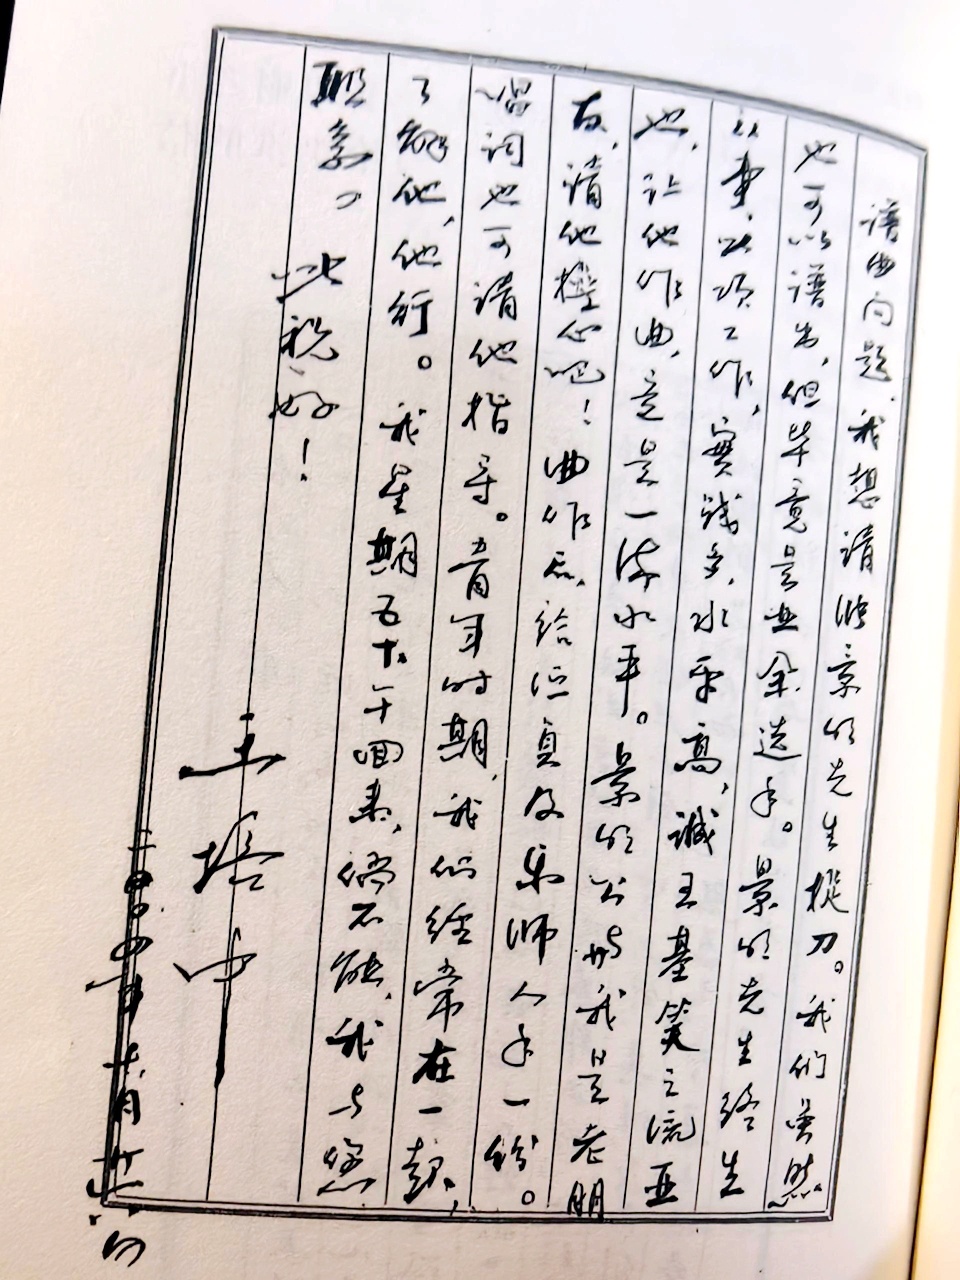 谱曲问题，我想请 景明先生操刀。我们虽然
也可以谱出，但毕竟是业余选手。景明先生终生
从事此项工作，实践多，水平高，诚 王基笑之流亚
也，让他作曲，竟是一流水平。景明公 我是老朋
友，请他操心吧！曲作 给 及 师人手一份。
唱词也可请他指导。青年时期，我们经常在一起，
了解他，他行。我星期五下午回来，倘不能，我与您
联系。
此祝
好！
王培中
二〇〇四年 月廿